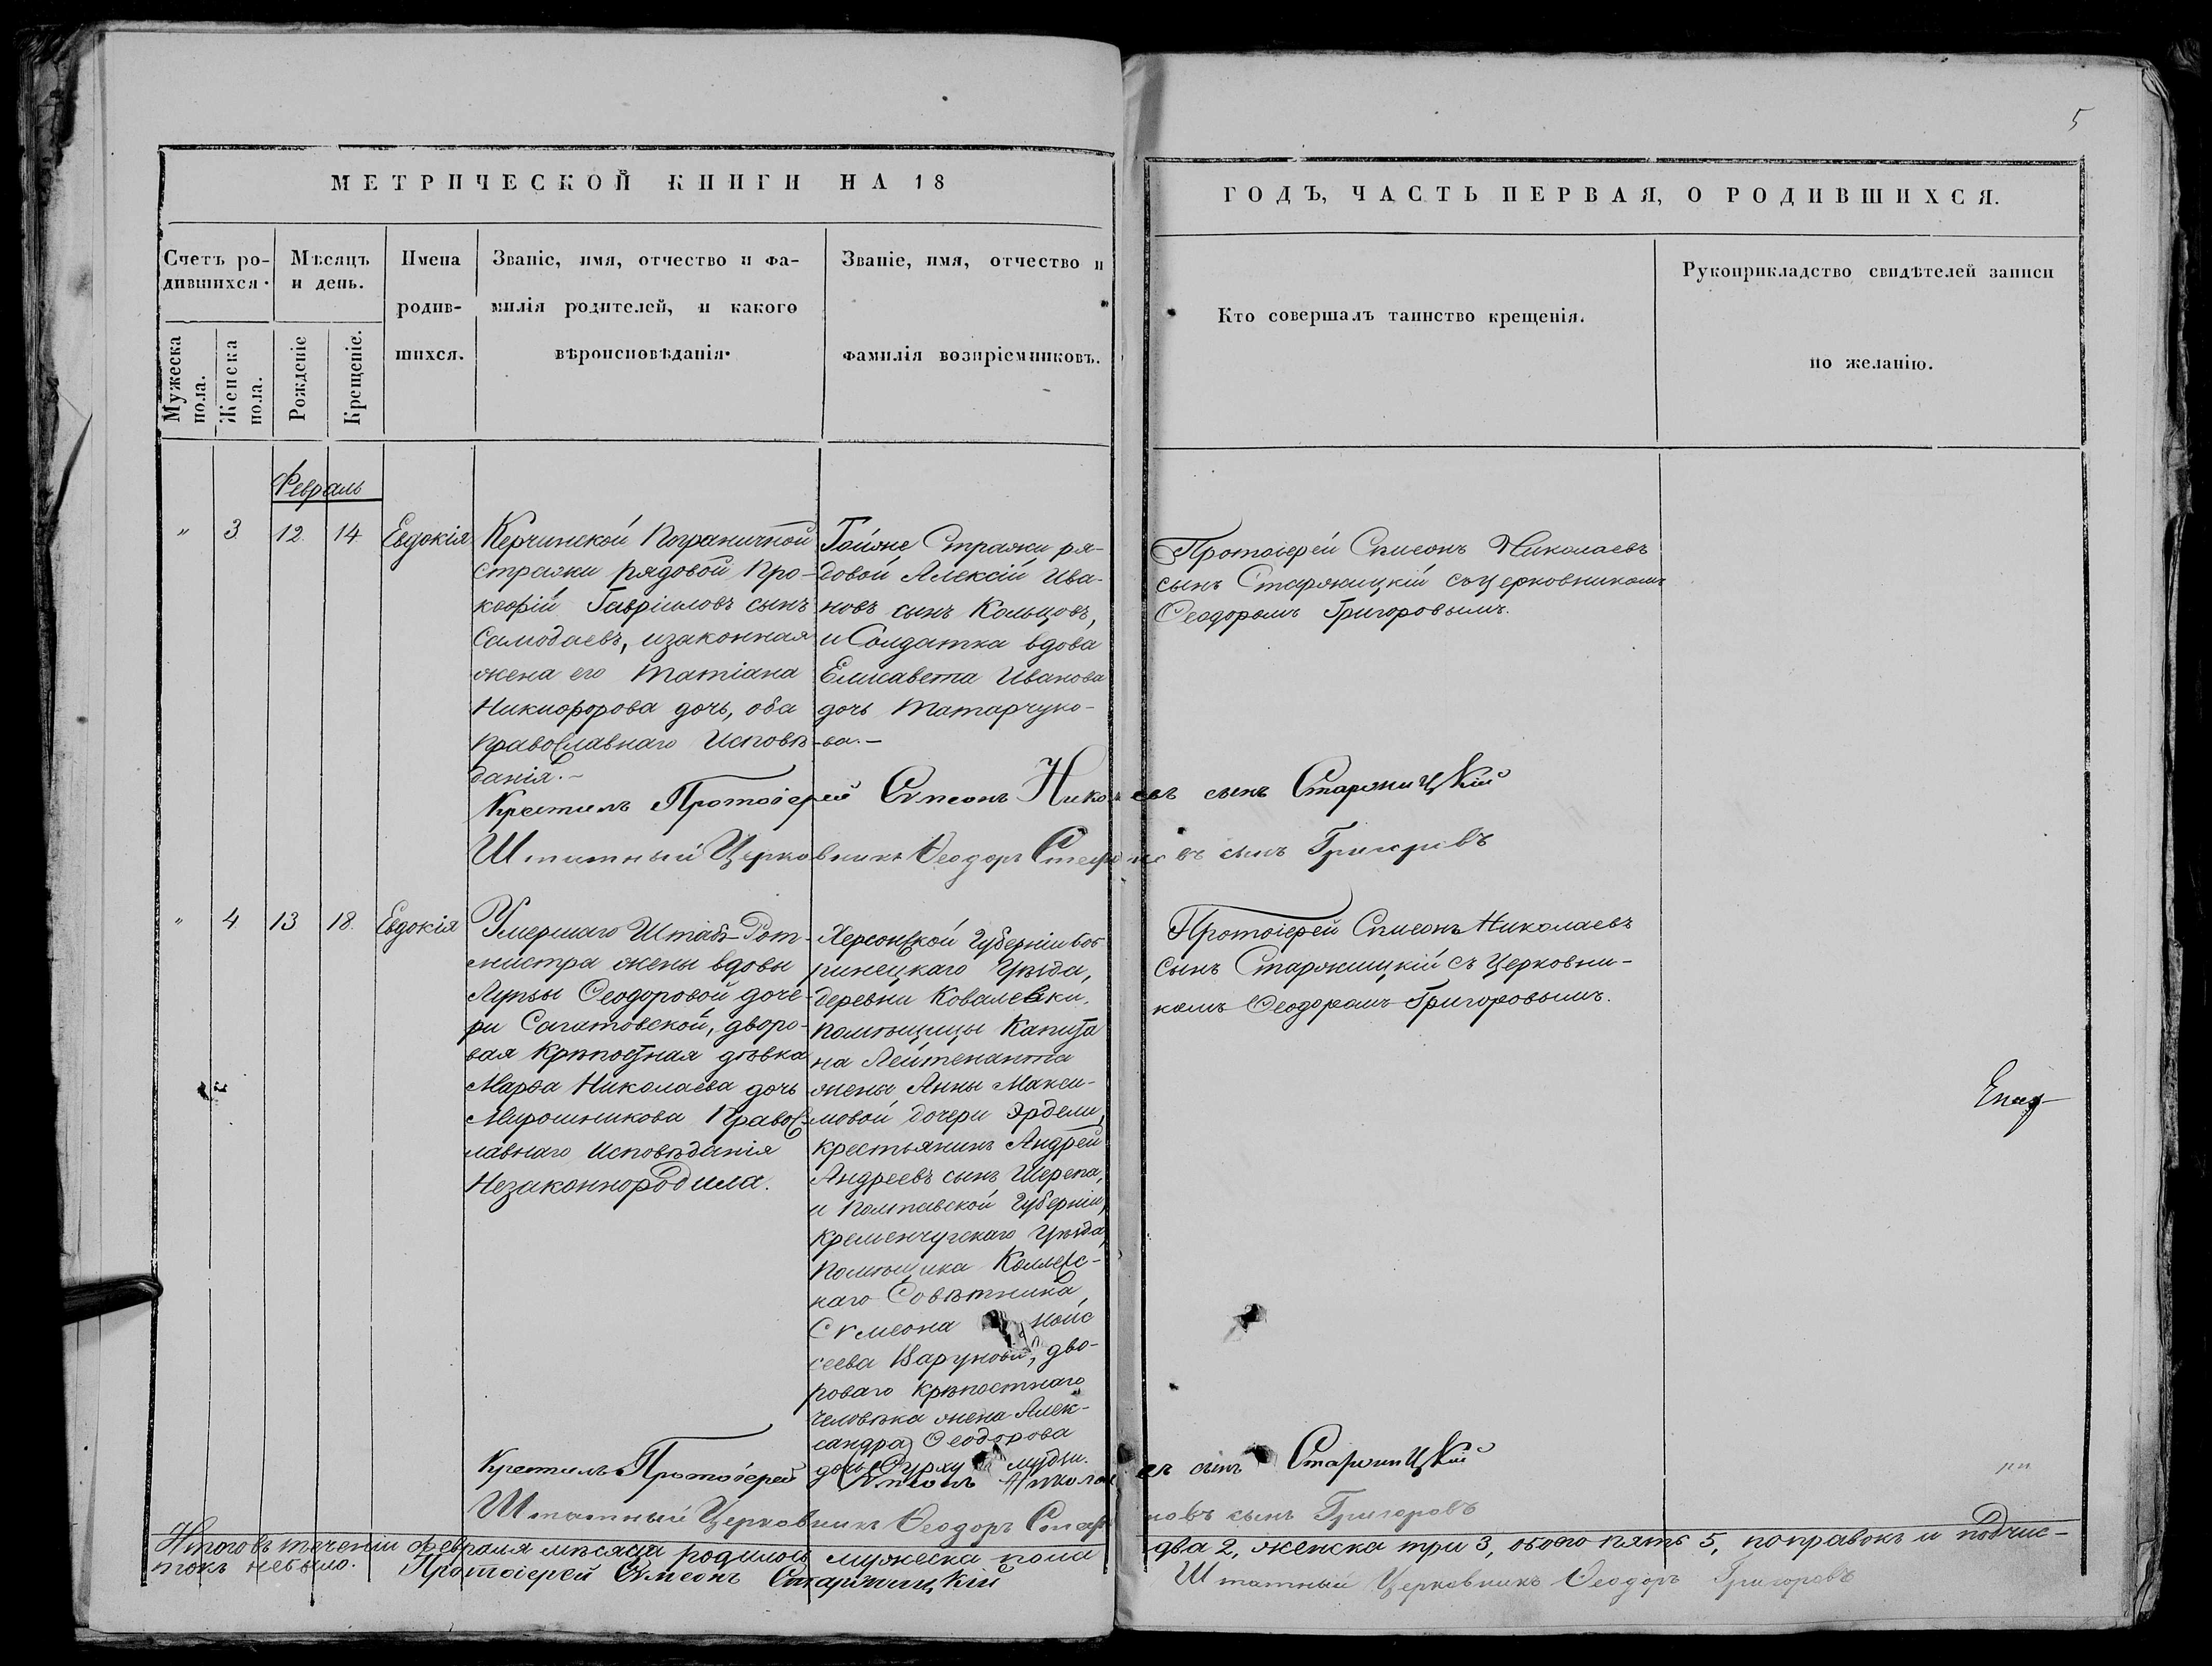 5
МЕТРИЧЕСКОЙ КНИГИ НА 18
ГОДЪ, ЧАСТЬ ПЕРВАЯ, О РОДИВШИХСЯ.
Счетъ ро-
дившихся.
Мужеска
пола.
Женска
пола.
Мѣсяцъ
и день.
Рожденіе
Крещеніе.
Имена
родив-
шихся.
Званіе, имя, отчество и фа-
милія родителей, и какого
вѣроисповѣданія.
Званіе, имя, отчество и
фамилія воспріемниковъ.
Кто совершалъ таинство крещенія.
Рукоприкладство свидѣтелей записи
по желанію.
Февраль
" 3 12 14 Евдокія
Керчинской Пограничной
стражи рядовой Про-
кофій Гавріиловъ сынъ
Самодаевъ, и законная
жена его Татіана
Никифорова дочь, оба
Православнаго Исповѣ-
данія.-
Тойже Стражи ря-
довой Алексій Ива-
новъ сынъ Кольцовъ,
и Солдатка вдова
Елисавета Иванова
дочь Татарчуко-
ва.-
Протоіерей Сѵмеонъ Николаевъ
сынъ Старжицкій съ Церковникомъ
Ѳеодоромъ Григоровымъ.
Крестилъ Протоіерей Сѵмеонъ Николаевъ сынъ Старжицкій
Штатный Церковникъ Ѳеодоръ сынъ Григоровъ
" 4 13 18 Евдокія
Умершаго Штабъ-Рот-
мистра жены вдовы
Луизы Ѳеодоровой доче-
ри Сагатовской, дворо-
вая крѣпостная дѣвка
Марѳа Николаева дочь
Мирошникова Правос-
лавнаго Исповѣданія
Незаконнородила.
Херсонской Губерніи Боб-
ринецкаго Уѣзда,
деревни Ковалевки,
помѣщицы Капита
на Лейтенанта
жены Анны Макси-
мовой дочери Эрдели,
крестьянинъ Андрей
Андреевъ сынъ Шерепа,
и Полтавской Губерніи,
Кременчугскаго Уѣзда,
Помѣщика Коллежс-
каго Совѣтника,
Сѵмеона
дво-
роваго крѣпостнаго
человѣка жена Алек-
сандра Ѳеодорова
дочь
Протоіерей Сѵмеонъ Николаевъ
сынъ Старжицкій съ Церковни-
комъ Ѳеодоромъ Григоровымъ.
Крестилъ Протоіерей Сѵмеонъ Николаевъ сынъ Старжицкій
Штатный Церковникъ Ѳеодоръ сынъ Григоровъ
Итого въ теченіи февраля мѣсяца родилось мужеска пола два 2, женска три 3, обоего пять 5, поправокъ и подчис-
токъ небыло. Протоіерей Сѵмеонъ Старжицкій Штатный Церковникъ Ѳеодоръ Григоровъ